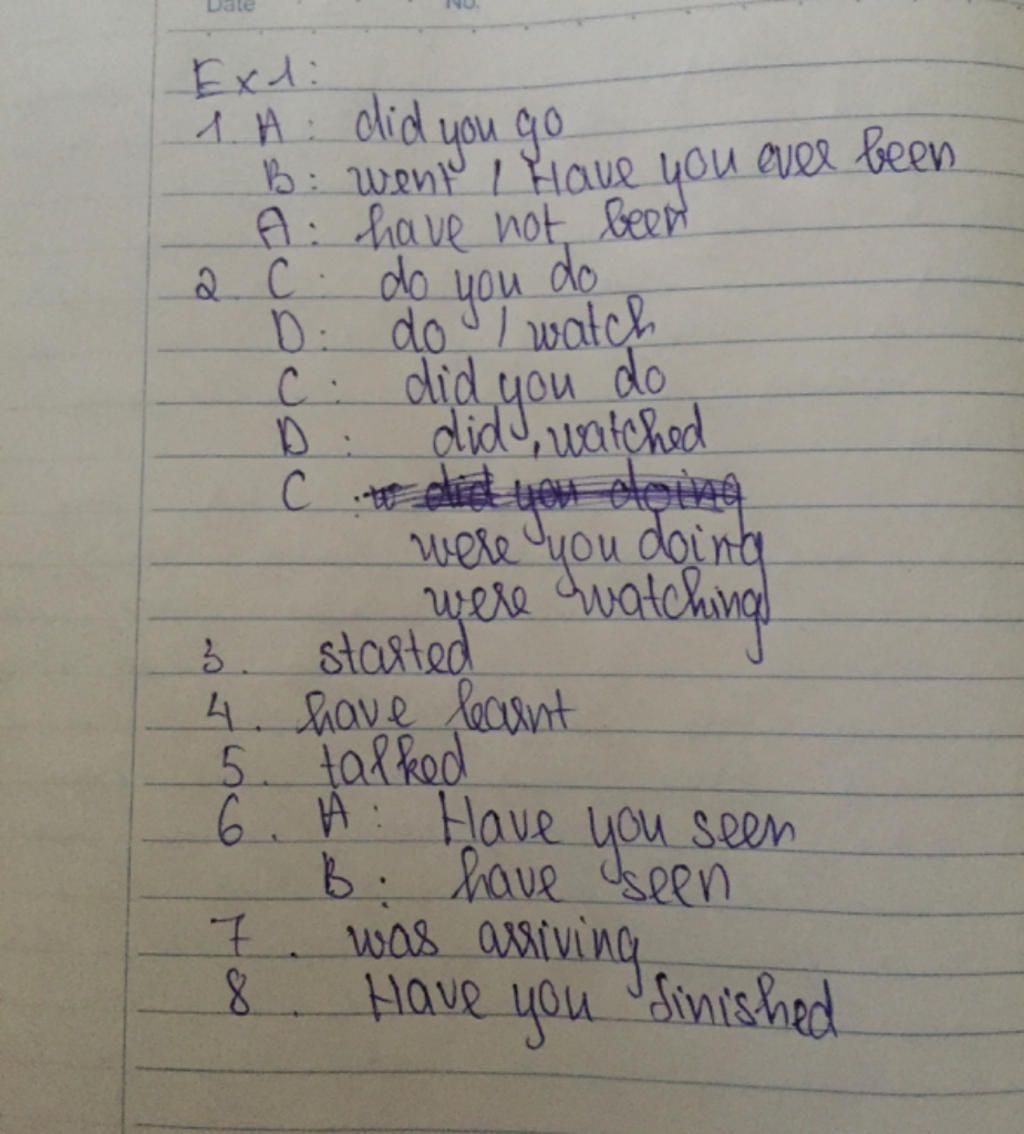 Date No.
Ex 1:
1. A: did you go
B: went / Have you ever been
A: have not been
2. C: do you do
D: do / watch
C: did you do
D: did, watched
C: did you doing
were you doing
were watching
3. started
4. have learnt
5. talked
6. A: Have you seen
B: have seen
7. was arriving
8. Have you finished